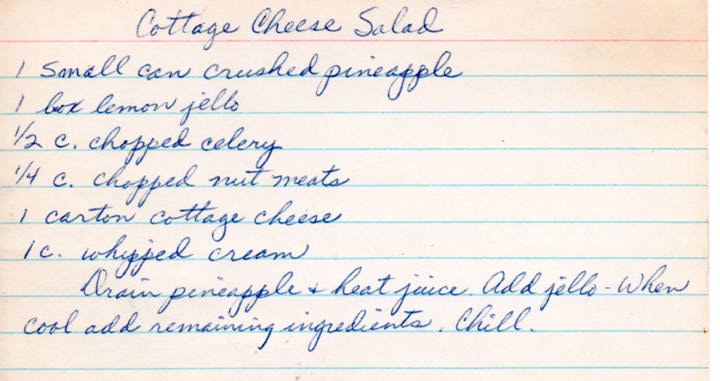 Cottage Cheese Salad
1 small can crushed pineapple
1 box lemon jello
1/2 c. chopped celery
1/4 c. chopped nut meats
1 carton cottage cheese
1 c. whipped cream
Drain pineapple & heat juice. Add jello - When
cool add remaining ingredients. Chill.